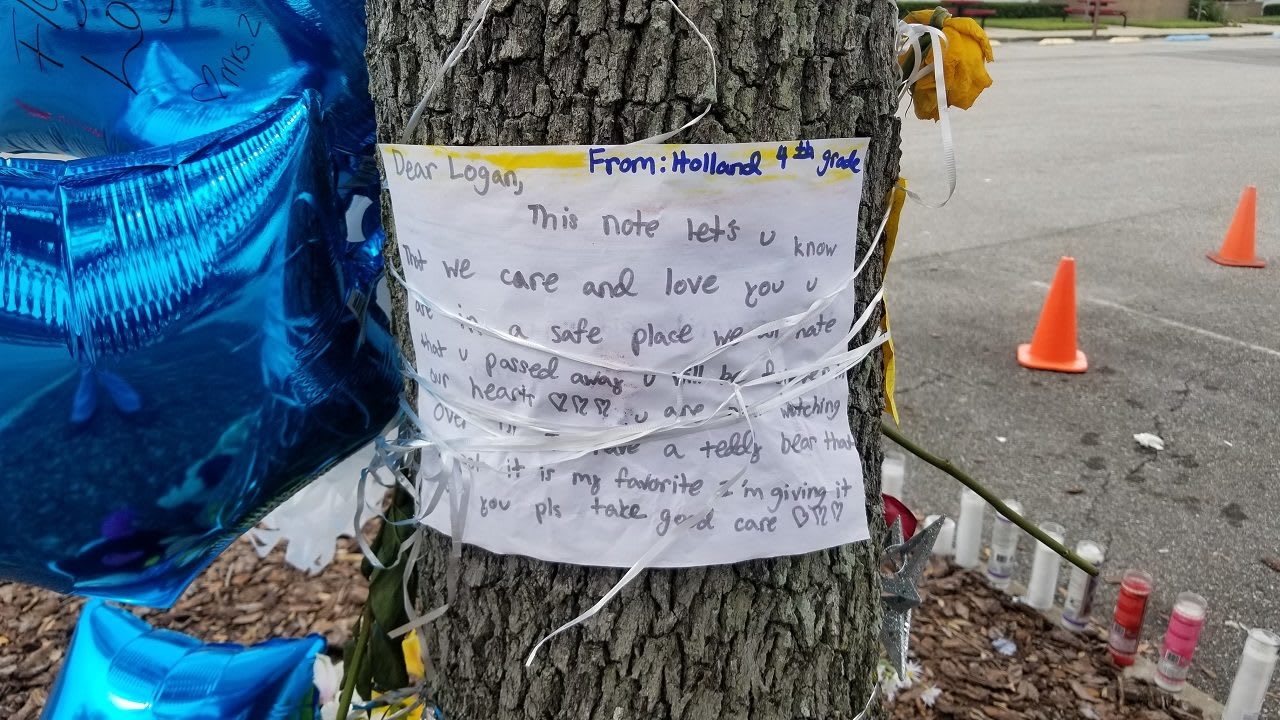 Mrs. 2
Dear Logan,
From: Holland 4th grade
This note lets u know
That we care and love you u
are in a safe place we all hate
that u passed away u will be forever in
our hearts u are watching
over a teddy bear that
it is my favorite I'm giving it
you pls take good care